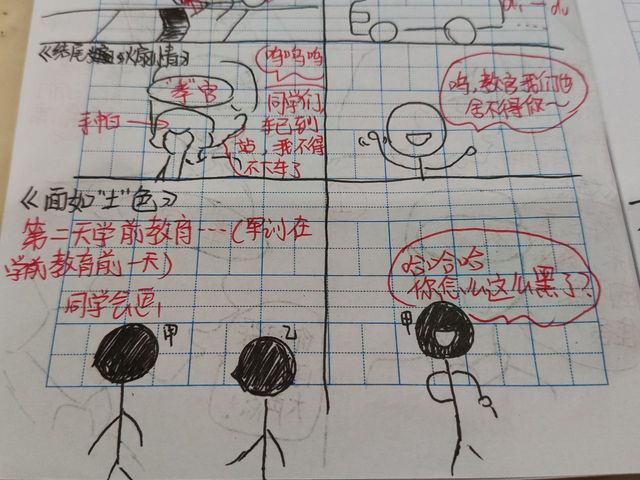 呜呜呜
"孝"官
同学们,
手帕
车已到
站,我不得
不下车了
呜,教官我们也
舍不得你~
《面如"土"色》
第二天学前教育……(军训在
学前教育前一天)
同学会面,
甲
乙
哈哈哈
你怎么这么黑了?
甲